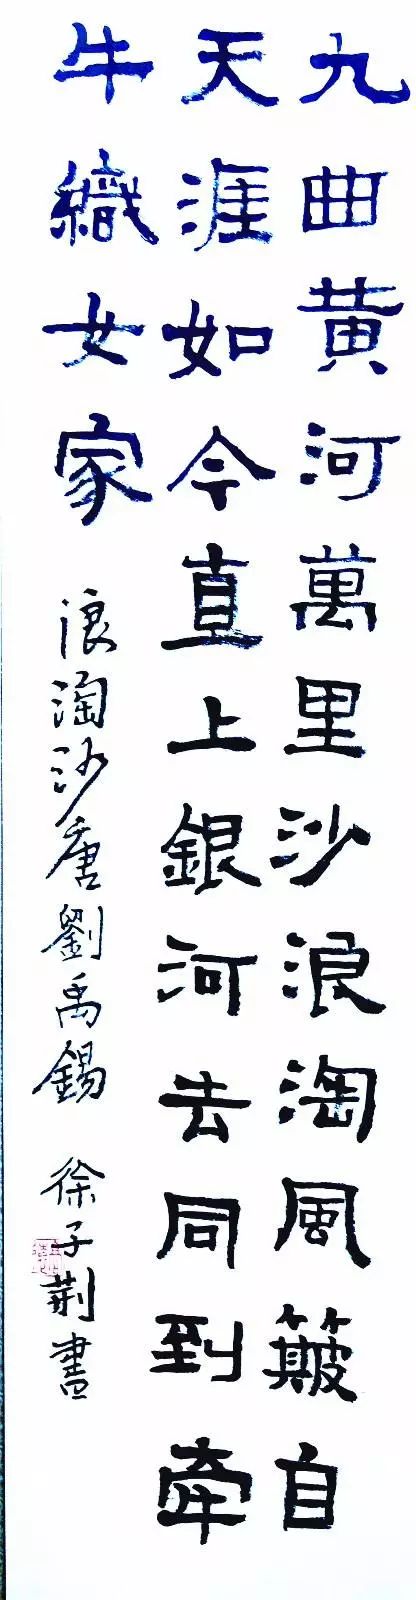 九曲黄河萬里沙浪淘風簸自
天涯如今直上銀河去同到牽
牛織女家
浪淘沙唐劉禹錫 徐子荆書